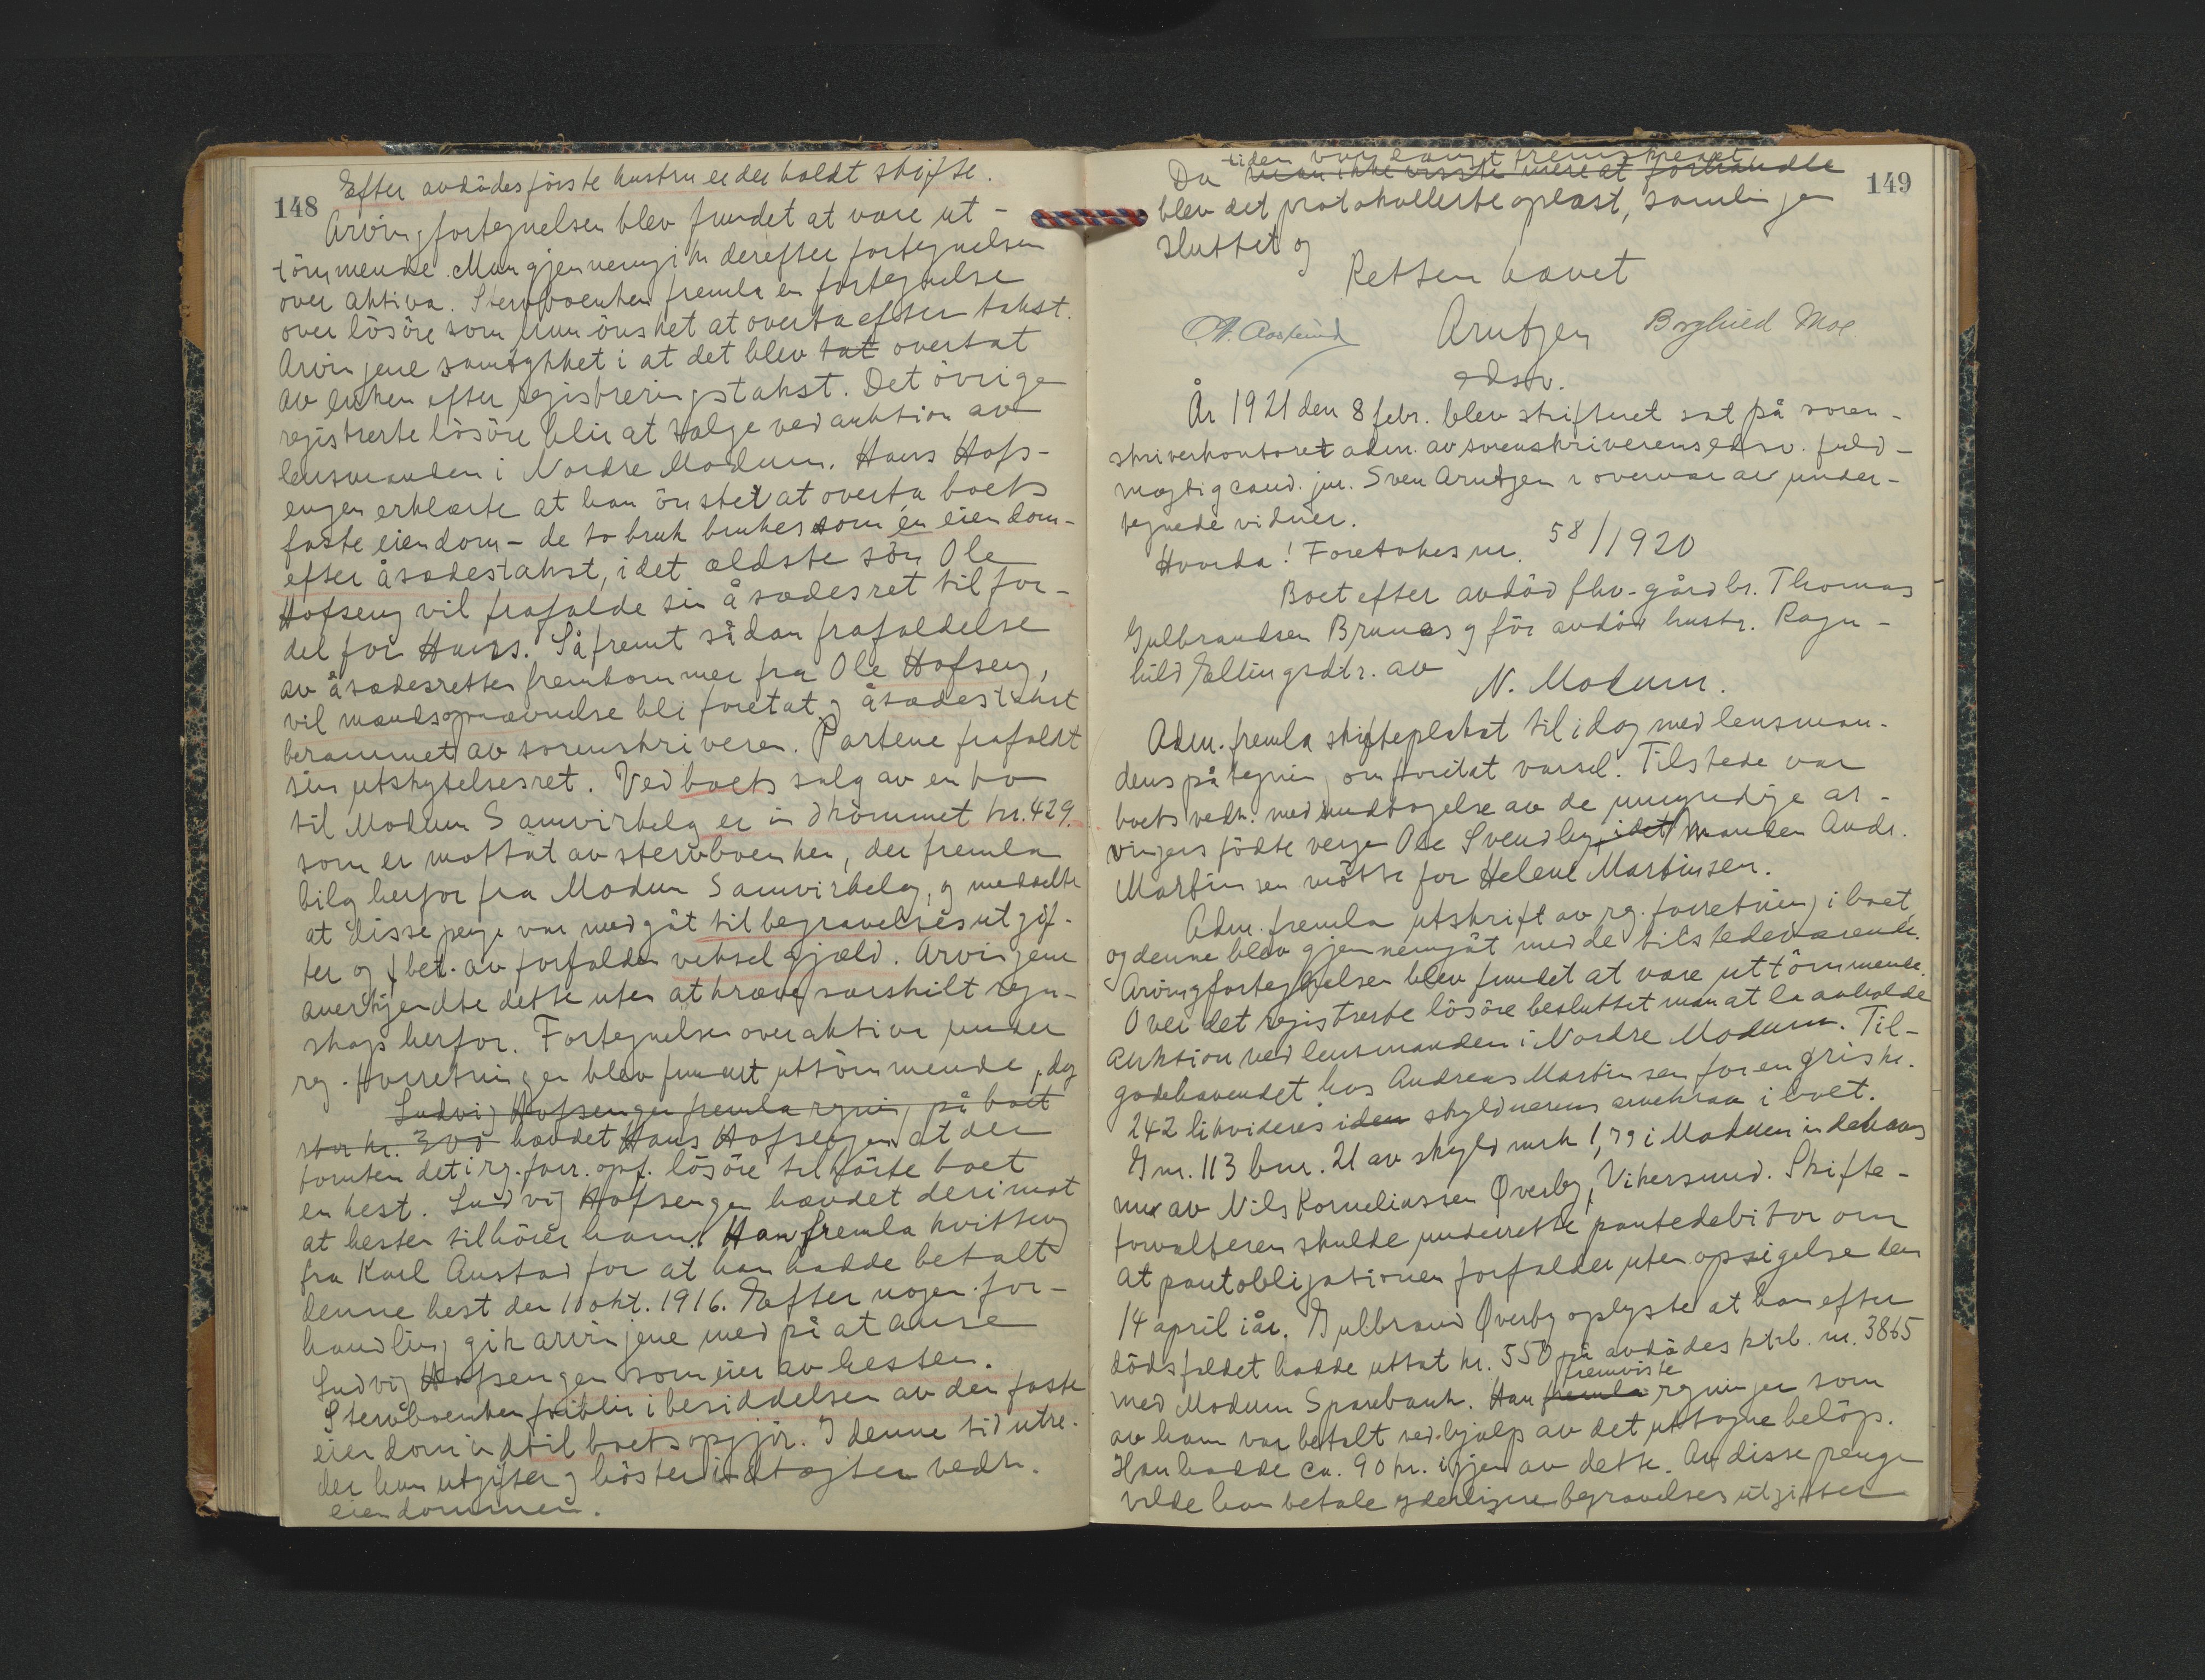 148
Efter avdödes förste hustru er der holdt skifte.
Arvingfortegnelsen blev fundet at være ut-
tömmende. Man gjennemgik derefter fortegnelsen
over aktiva. Stervboenken fremla en fortegnelse
over lösöre som hun önsket at overta efter takst.
Arvingene samtykket i at det blev tat overtat
av enken efter registreringstakst. Det övrige
registrerte lösöre blir at sælge ved auktion av
lensmanden i Nordre Modum. Hans Hofs-
engen erklærte at han önsket at overta boets
faste eiendom - de to bruk brukes som én eiendom -
efter åsædestakst, idet ældste sön Ole
Hofseng vil frafalde sin åsædesret til for-
del for Hans. Såfremt sådan frafaldelse
av åsædesretten fremkommer fra Ole Hofseng,
vil mandsopnævnelse bli foretat og åsædestakst
berammet av sorenskriveren. Partene frafaldt
sin utskytelsesret. Ved boets salg av en ko
til Modum Samvirkelag er indkommet kr. 429.
som er mottat av stervboenken, der fremla
bilag herfor fra Modum Samvirkelag, og meddelte
at disse penge var medgåt til begravelsesutgif-
ter og bet. av forfalden vekselgjæld. Arvingene
anerkjendte dette uten at kræve særskilt regn-
skap herfor. Fortegnelsen over aktiva under
reg. forretningen blev fundet uttömmende, dog
Ludvig Hofsengen fremla regning på boet
stor kr. 300 hævdet Hans Hofsengen at der
foruten det i rg. forr. opf. lösöre tilhörte boet
en hest. Ludvig Hofsengen hævdet derimot
at hesten tilhörer ham. Han fremla kvittering
fra Karl Austad for at han hadde betalt
denne hest den 10 okt. 1916. Efter nogen for-
handling gik arvingene med på at anse
Ludvig Hofsengen som eier av hesten.
Stervboenken forblir i besiddelsen av den faste
eiendom indtil boets opgjör. I denne tid utre-
der hun utgifter og höster indtægter vedk.
eiendommen.
149
tiden var langt fremskredet
Da man ikke visste mere at forhandle
blev det protokollerte oplæst, samlingen
sluttet og
Retten hævet
A. Aaslund Arntzen Borghild Moe
edsv.
År 1921 den 8 febr. blev skifteret sat på soren-
skriverkontoret adm. av sorenskriverens edsv. fuld-
mægtig cand. jur. Sven Arntzen i overvær av under-
tegnede vidner.
Hvorda! Foretokes nr. 58/1920
Boet efter avdöd fhv. gårdbr. Thomas
Gulbrandsen Brunes og för avdöd hustr. Ragn-
hild Ellingsdtr. av N. Modum.
Adm. fremla skifteplakat til idag med lensman-
dens påtegning om foretat varsel. Tilstede var
boets vedk. med undtagelse av de umyndige ar-
vingers födte verge Ole Svendby, idet Manden Andr.
Martinsen mötte for Helene Martinsen.
Adm. fremla utskrift av rg. forretning i boet,
og denne blev gjennemgåt med de tilstedeværende.
Arvingfortegnelsen blev fundet at være uttömmende.
Over det registrerte lösöre besluttet man at la avholde
auktion ved lensmanden i Nordre Modum. Til-
godehavendet hos Andreas Martinsen for en gris kr.
242 likvideres iden skyldnerens arvekrav i boet.
Gnr. 113 bnr. 21 av skyld mrk 1,79 i Modum indehaves
nu av Nils Korneliussen Øverby, Vikersund. Skifte-
forvalteren skulde underrette pantedebitor om
at pantobligationen forfalder uten opsigelse den
14 april iår. Gulbrand Øverby oplyste at han efter
dödsfaldet hadde uttat kr. 550 på avdödes ktrb. nr. 3865
fremviste
med Modum Sparebank. Han fremla regninger som
av ham var betalt ved hjælp av det uttagne belöp.
Han hadde ca. 90 kr. igjen av dette. Av disse penge
vilde han betale yderligere begravelsesutgifter